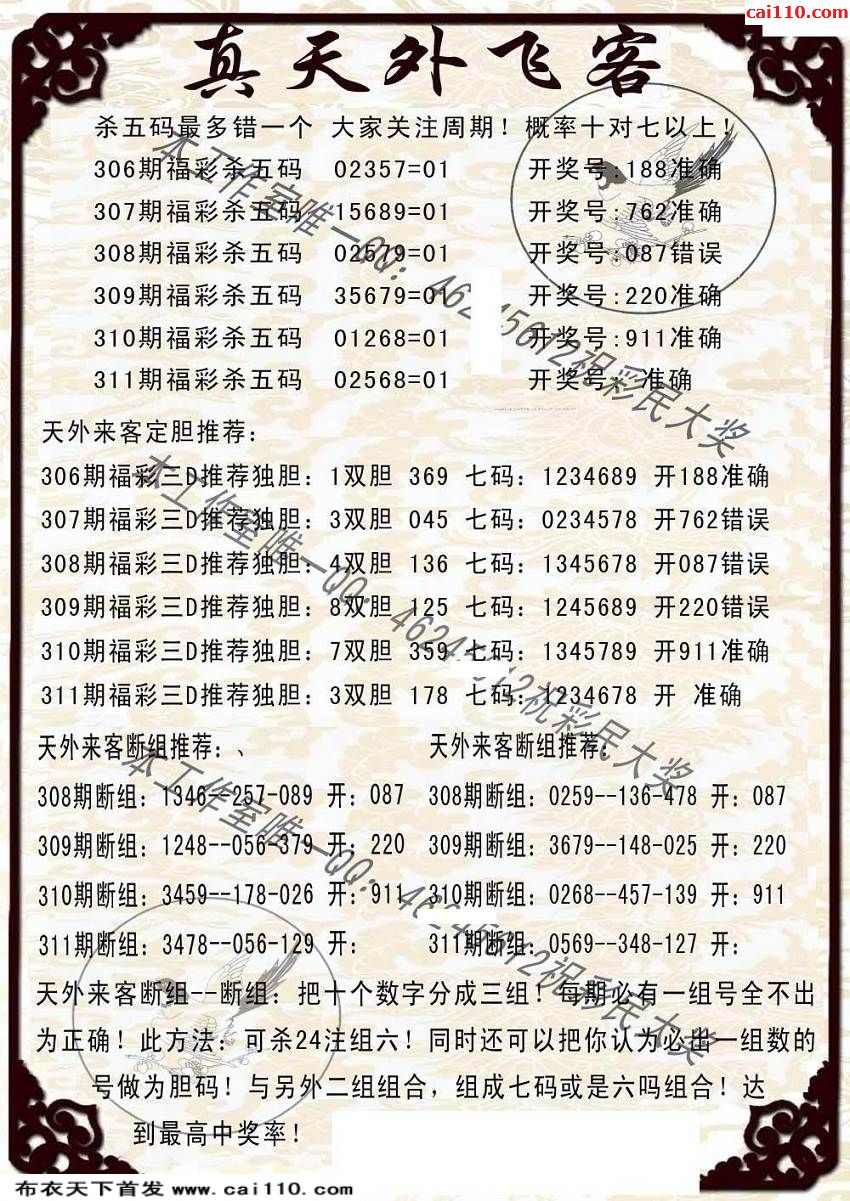 cai110.com
真天外飞客
杀五码最多错一个 大家关注周期！概率十对七以上！
306期福彩杀五码 02357=01 开奖号:188准确
307期福彩杀五码 15689=01 开奖号:762准确
308期福彩杀五码 02579=01 开奖号:087错误
309期福彩杀五码 35679=01 开奖号:220准确
310期福彩杀五码 01268=01 开奖号:911准确
311期福彩杀五码 02568=01 开奖号: 准确
天外来客定胆推荐：
306期福彩三D推荐独胆：1双胆 369 七码：1234689 开188准确
307期福彩三D推荐独胆：3双胆 045 七码：0234578 开762错误
308期福彩三D推荐独胆：4双胆 136 七码：1345678 开087错误
309期福彩三D推荐独胆：8双胆 125 七码：1245689 开220错误
310期福彩三D推荐独胆：7双胆 359 七码：1345789 开911准确
311期福彩三D推荐独胆：3双胆 178 七码：1234678 开 准确
天外来客断组推荐：、 天外来客断组推荐：
308期断组：1346--257-089 开：087 308期断组：0259--136-478 开：087
309期断组：1248--056-379 开：220 309期断组：3679--148-025 开：220
310期断组：3459--178-026 开：911 310期断组：0268--457-139 开：911
311期断组：3478--056-129 开： 311期断组：0569--348-127 开：
天外来客断组--断组：把十个数字分成三组！每期必有一组号全不出
为正确！此方法：可杀24注组六！同时还可以把你认为必出一组数的
号做为胆码！与另外二组组合，组成七码或是六吗组合！达
到最高中奖率！
本工作室唯一QQ：46245612祝彩民大奖
本工作室唯一QQ：46245612祝彩民大奖
本工作室唯一QQ：46245612祝彩民大奖
布衣天下首发 www.cai110.com